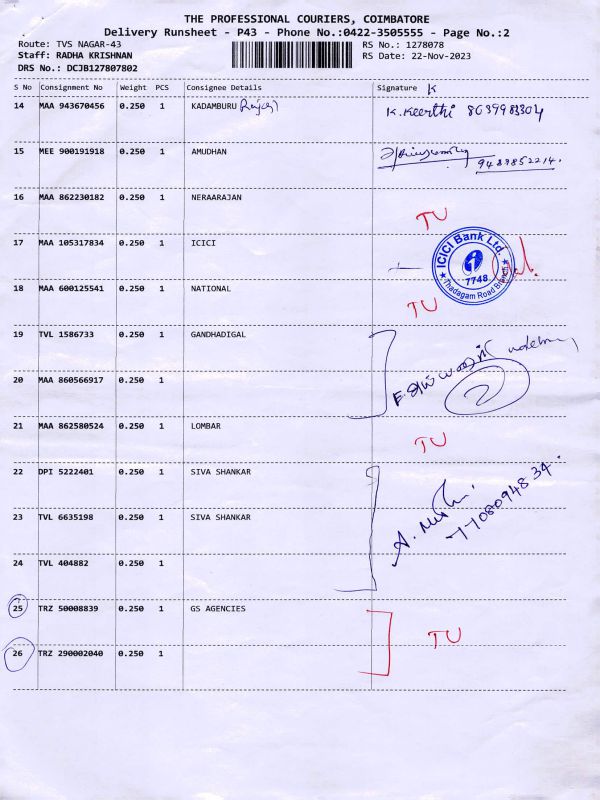 THE PROFESSIONAL COURIERS, COIMBATORE
Delivery Runsheet - P43 - Phone No.:0422-3505555 - Page No.:2
Route: TVS NAGAR-43 RS No.: 1278078
Staff: RADHA KRISHNAN RS Date: 22-Nov-2023
DRS No.: DCJB127807802
S No Consignment No Weight PCS Consignee Details Signature K
14 MAA 943670456 0.250 1 KADAMBURU K. Keerthi
15 MEE 900191918 0.250 1 AMUDHAN
9487852214.
16 MAA 862230182 0.250 1 NERAARAJAN
TU
17 MAA 105317834 0.250 1 ICICI
ICICI Bank Ltd.
7748
Thadagam Road Branch
18 MAA 600125541 0.250 1 NATIONAL
TU
19 TVL 1586733 0.250 1 GANDHADIGAL
20 MAA 860566917 0.250 1
2
21 MAA 862580524 0.250 1 LOMBAR
TU
22 DPI 5222401 0.250 1 SIVA SHANKAR
23 TVL 6635198 0.250 1 SIVA SHANKAR
7708094834.
24 TVL 404882 0.250 1
25 TRZ 50008839 0.250 1 GS AGENCIES
TU
26 TRZ 290002040 0.250 1